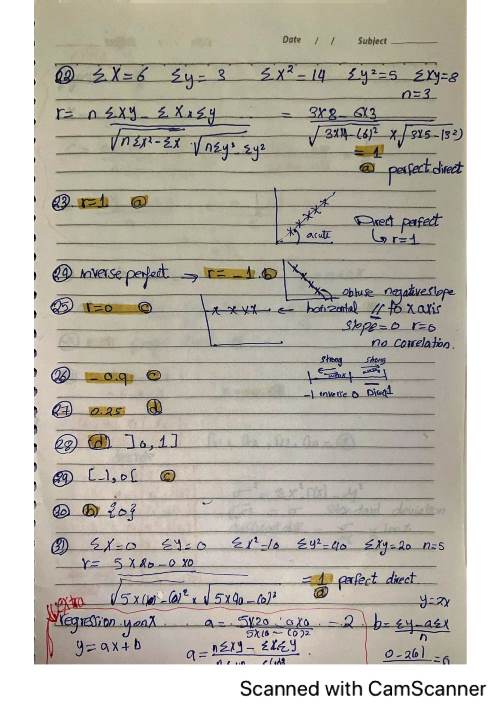 Date / / Subject
22 ΣX=6 Σy=3 Σx²=14 Σy²=5 Σxy=8
n=3
r= nΣxy - Σx×Σy = 3×8 - 6×3
√nΣx²-Σx · √nΣy²-Σy² √3×14-(6)² × √3×5-(3)²
= 1
a perfect direct
23 r=1 a
acute
Direct perfect
↳ r=1
24 inverse perfect → r= -1 . b
obtuse negative slope
25 r=0 c ← horizontal // to x axis
slope=0 r=0
no correlation.
26 -0.9 c
strong strong
weak weak
-1 inverse 0 Direct 1
27 0.25 d
28 d ]0,1]
29 [-1,0[ c
30 b {0}
31 Σx=0 Σy=0 Σx²=10 Σy²=40 Σxy=20 n=5
r= 5×20-0×0
√5×10-(0)² × √5×40-(0)²
= 1 perfect direct
a
Extra
y=2x
regression y on x a= 5×20-0×0 = 2 b= Σy-aΣx
5×10-(0)² n
y=ax+b a= nΣxy-ΣxΣy